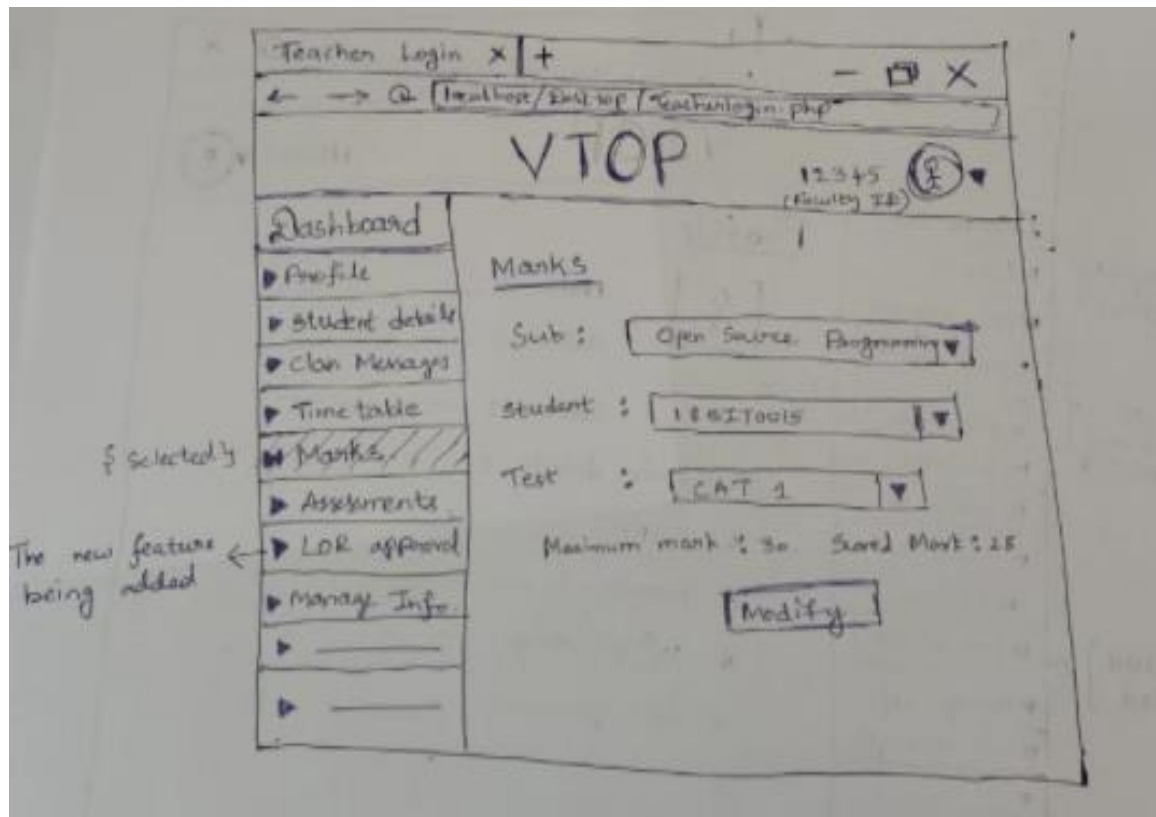 Teacher Login × | +
— ×
← → localhost/ /Teacherlogin.php
VTOP
12345
(Faculty ID)
Dashboard
Profile
Student details
Class Messages
Time table
Marks
{ selected }
Assessments
LOR approval
The new feature
being added
Manage Info
Marks
Sub : Open Source Programming
Student : 18BIT0015
Test : CAT 1
Maximum mark : 30 Scored Mark : 28
Modify